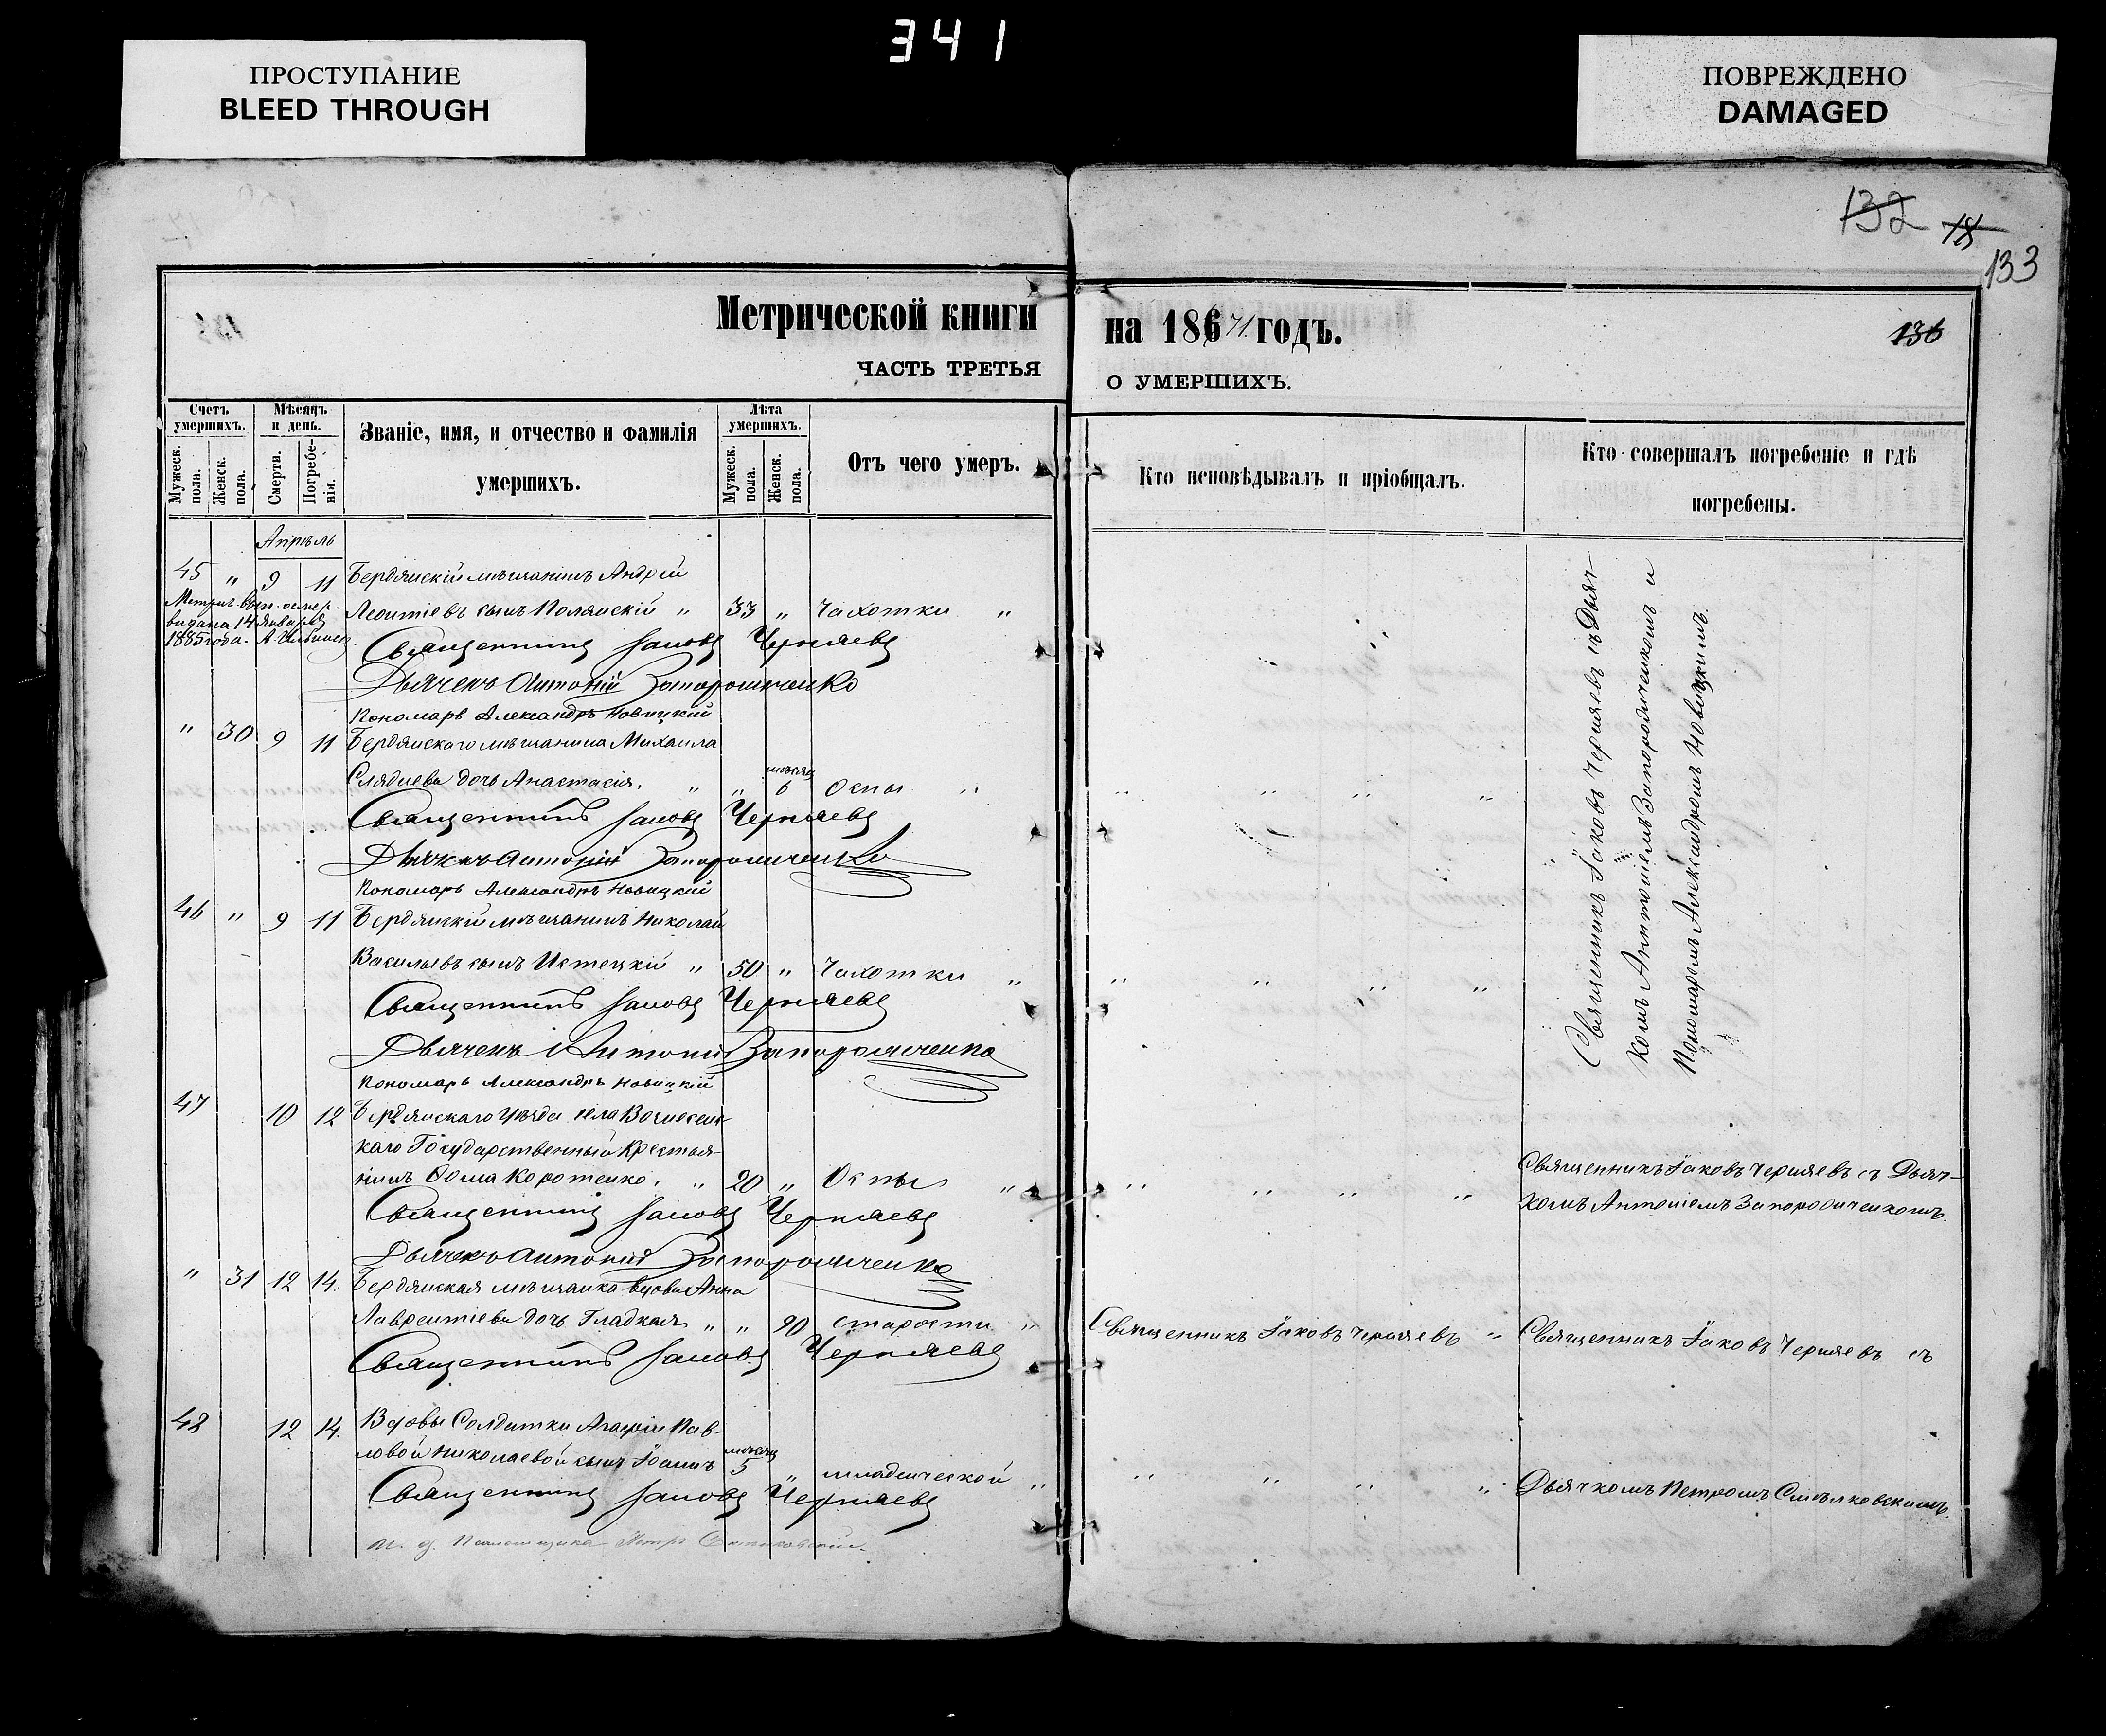 341
ПРОСТУПАНИЕ
BLEED THROUGH
ПОВРЕЖДЕНО
DAMAGED
132 18
133
136
Метрической книги на 1871 годъ.
ЧАСТЬ ТРЕТЬЯ О УМЕРШИХЪ.
Счетъ умершихъ.
Мужеск. пола.
Женск. пола.
Мѣсяцъ и день.
Смерти.
Погребенія.
Званіе, имя, и отчество и фамилія умершихъ.
Лѣта умершихъ.
Мужеск. пола.
Женск. пола.
Отъ чего умеръ.
Кто исповѣдывалъ и пріобщалъ.
Кто совершалъ погребеніе и гдѣ погребены.
Апрѣль
45 " 9 11 Бердянскій мѣщанинъ Андрей
Леонтіевъ сынъ Полянскій " 33 " Чахотки "
выдана 14 Января
1885 года.
Священникъ Іаковъ Черняевъ
Дьячекъ Антоній Запорожченко
Пономарь Александръ Новицкій
" 30 9 11 Бердянскаго мѣщанина Михаила
дочь Анастасія. " " мѣсяц 6 Оспы "
Священникъ Іаковъ Черняевъ
Дьячекъ Антоній Запорожченко
Пономарь Александръ Новицкій
46 " 9 11 Бердянскій мѣщанинъ Николай
Васильевъ сынъ Истецкій " 50 " Чахотки "
Священникъ Іаковъ Черняевъ
Дьячекъ Антоній Запорожченко
Пономарь Александръ Новицкій
Священникъ Іаковъ Черняевъ съ Дьяч-
комъ Антоніемъ Запорожченкомъ и
Пономаремъ Александромъ Новицкимъ.
47 10 12 Бердянскаго Уѣзда села Вознесен-
каго Государственный Крестья-
нинъ Фома Коротенко. " 20 " Оспы "
Священникъ Іаковъ Черняевъ съ Дьяч-
комъ Антоніемъ Запорожченкомъ.
Священникъ Іаковъ Черняевъ
Дьячекъ Антоній Запорожченко
" 31 12 14. Бердянская мѣщанка вдова Анна
Лаврентіева дочь Гладкая " " 90 старости "
Священникъ Іаковъ Черняевъ " Священникъ Іаковъ Черняевъ съ
Священникъ Іаковъ Черняевъ
48 12 14. Вдовы Солдатки Агафіи Пав-
ловой Николаевой сынъ Іоаннъ мѣсяц 5 " младенческой "
Дьячкомъ Петромъ
Священникъ Іаковъ Черняевъ